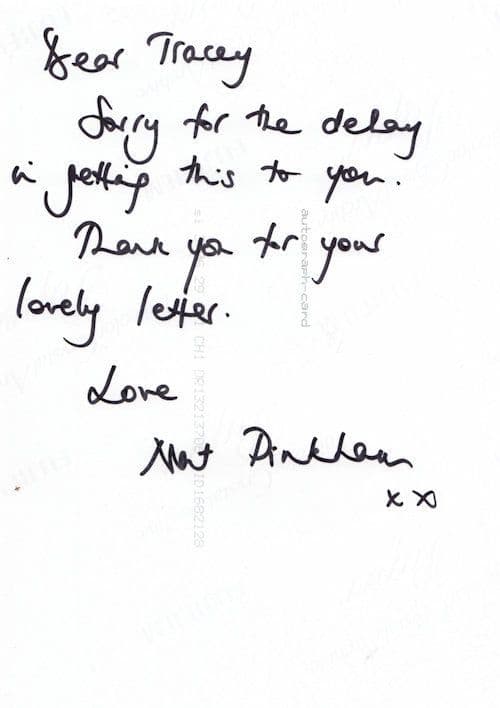 Dear Tracey
Sorry for the delay
in getting this to you.
Thank you for your
lovely letter.
Love
Mat Pinkham
x x
autograph-card